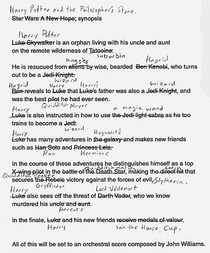 Harry Potter and the Philosopher's Stone
Star Wars A New Hope; synopsis
Harry Potter
Luke Skywalker is an orphan living with his uncle and aunt
Suburbia
on the remote wilderness of Tatooine.
Muggles Hagrid
He is rescued from aliens by wise, bearded Ben Kenobi, who turns
Wizard
out to be a Jedi Knight.
Hagrid Harry Harry's wizard
Ben reveals to Luke that Luke's father was also a Jedi Knight, and
Quidditch player
was the best pilot he had ever seen.
Harry a magic wand
Luke is also instructed in how to use the Jedi light sabre as he too
wizard
trains to become a Jedi.
Harry Hogwarts
Luke has many adventures in the galaxy and makes new friends
Ron Hermione
such as Han Solo and Princess Leia.
In the course of these adventures he distinguishes himself as a top
X-wing pilot in the battle of the Death Star, making the direct hit that
secures the Rebels victory against the forces of evil.
Slytherin.
Harry Gryffindor Lord Voldemort
Luke also sees off the threat of Darth Vader, who we know
murdered his uncle and aunt.
parents
In the finale, Luke and his new friends receive medals of valour.
Harry win the House Cup.
All of this will be set to an orchestral score composed by John Williams.